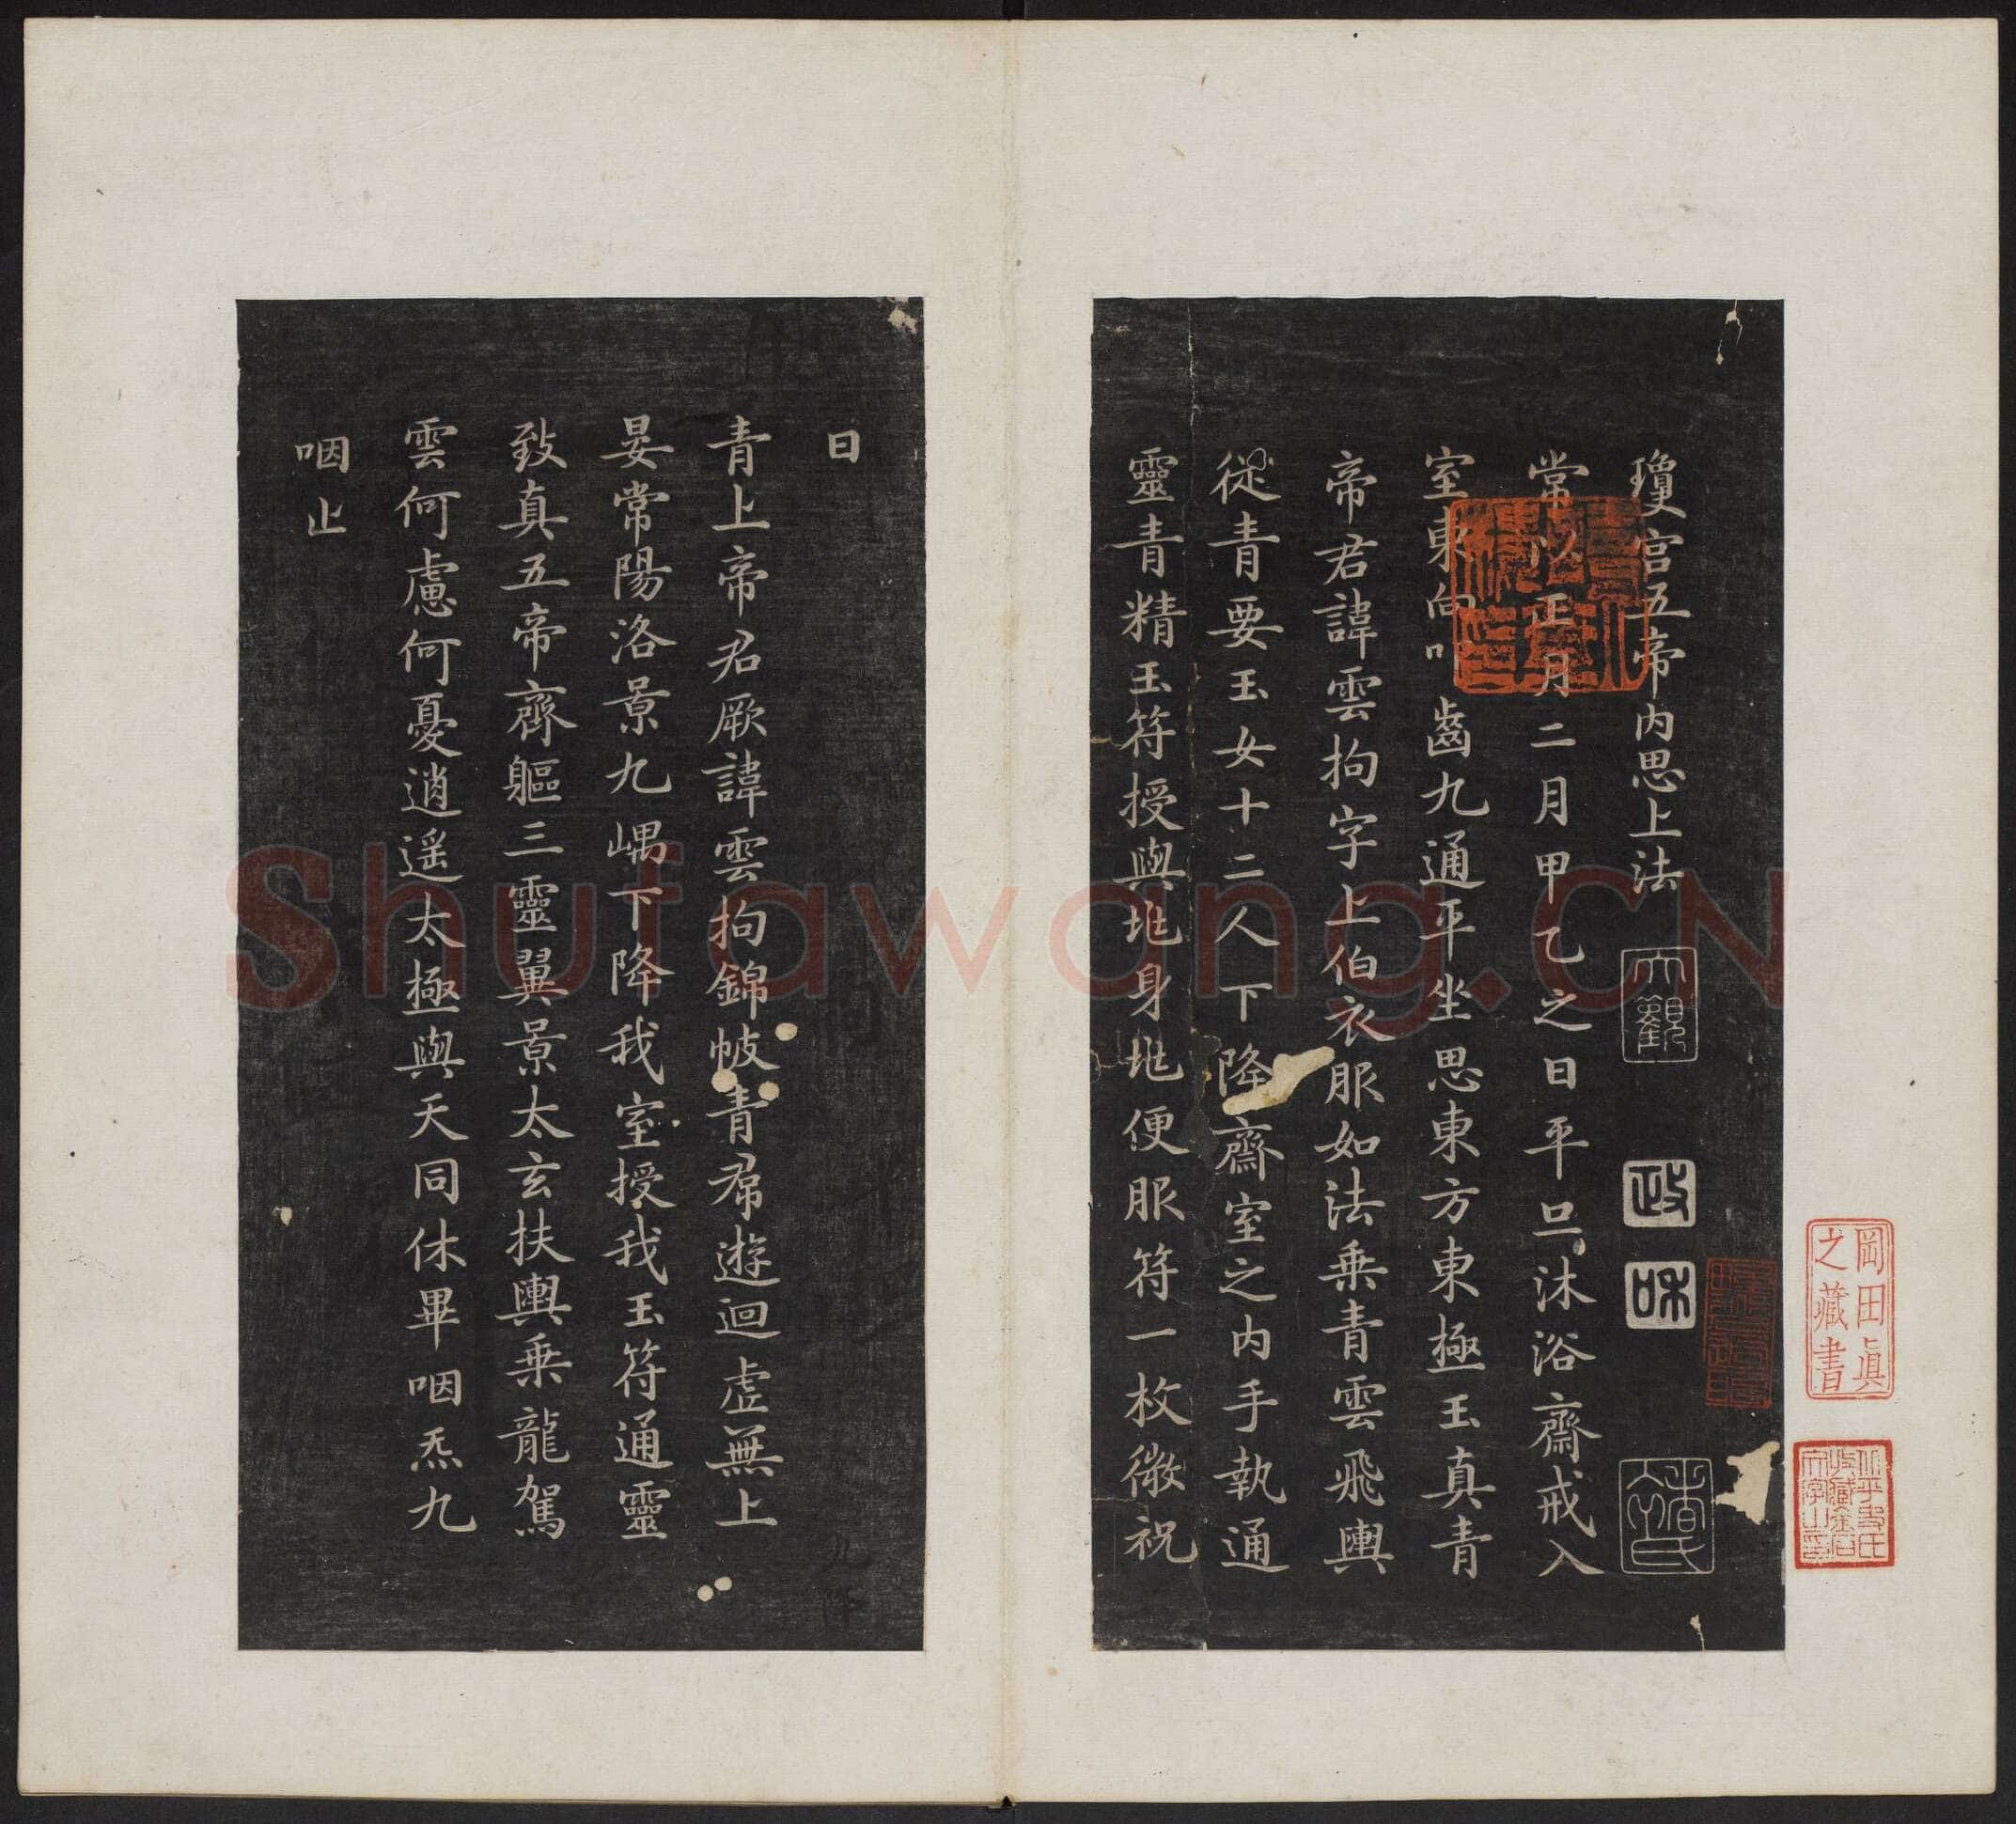 瓊宮五帝内思上法
大觀
政
和
常以正月二月甲乙之日平旦沐浴齋戒入
室東向叩齒九通平坐思東方東極玉真青
帝君諱雲拘字上伯衣服如法乗青雲飛輿
從青要玉女十二人下降齋室之内手執通
靈青精玉符授與地身地便服符一枚微祝
曰
青上帝君厥諱雲拘錦帔青帬遊迴虚無上
晏常陽洛景九嵎下降我室授我玉符通靈
致真五帝齊軀三靈翼景太玄扶輿乗龍駕
雲何慮何憂逍遥太極與天同休畢咽炁九
咽止
岡田真
之藏書
Shufawang.CN